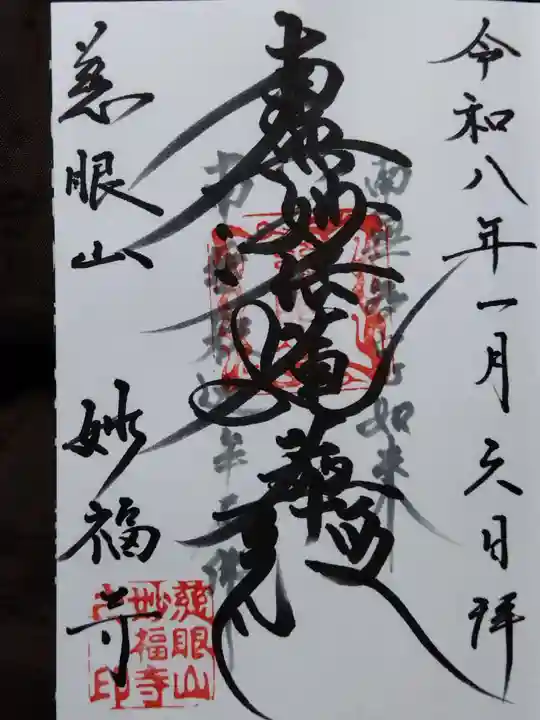 令和八年一月六日拝
南無妙法蓮華経
南無多宝如来
南無釈迦牟尼仏
慈眼山 妙福寺
慈眼山
妙福寺